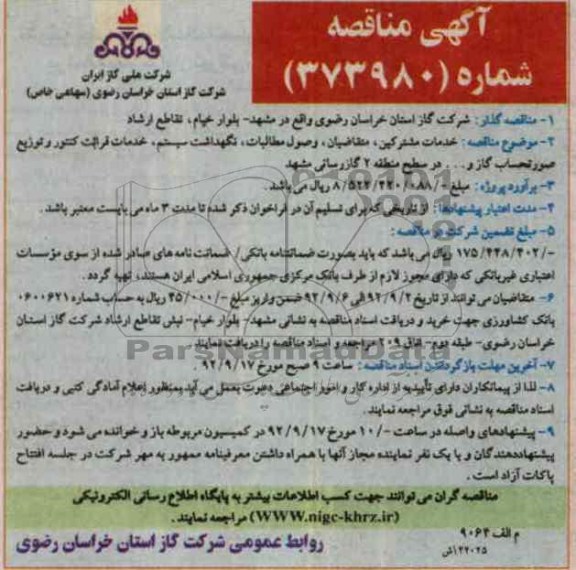 آگهی مناقصه
شماره (۳۷۳۹۸۰)
شرکت ملی گاز ایران
شرکت گاز استان خراسان رضوی (سهامی خاص)
۱- مناقصه گذار: شرکت گاز استان خراسان رضوی واقع در مشهد- بلوار خیام، تقاطع ارشاد
۲- موضوع مناقصه: خدمات مشترکین، متقاضیان، وصول مطالبات، نگهداشت سیستم، خدمات قرائت کنتور و توزیع
صورتحساب گاز و . . . در سطح منطقه ۲ گازرسانی مشهد
۳- برآورد پروژه: مبلغ -/۸/۵۲۲/۴۲۰/۰۸۸ ریال می باشد.
۴- مدت اعتبار پیشنهادها: از تاریخی که برای تسلیم آن در فراخوان ذکر شده تا مدت ۳ ماه می بایست معتبر باشد.
۵- مبلغ تضمین شرکت در مناقصه:
-/۱۷۵/۴۴۸/۴۰۲ ریال می باشد که باید بصورت ضمانتنامه بانکی/ ضمانت نامه های صادر شده از سوی مؤسسات
اعتباری غیربانکی که دارای مجوز لازم از طرف بانک مرکزی جمهوری اسلامی ایران هستند، تهیه گردد.
۶- متقاضیان می توانند از تاریخ ۹۲/۹/۲ الی ۹۲/۹/۶ ضمن واریز مبلغ -/۴۵/۰۰۰ ریال به حساب شماره ۰۶۰۰۶۲۱
بانک کشاورزی جهت خرید و دریافت اسناد مناقصه به نشانی مشهد- بلوار خیام- نبش تقاطع ارشاد شرکت گاز استان
خراسان رضوی- طبقه دوم- اتاق ۲۰۹ مراجعه و اسناد مناقصه را دریافت نمایند.
۷- آخرین مهلت بازگرداندن اسناد مناقصه: ساعت ۹ صبح مورخ ۹۲/۹/۱۷.
۸- لذا از پیمانکاران دارای تأییدیه از اداره کار و امور اجتماعی دعوت بعمل می آید بمنظور اعلام آمادگی کتبی و دریافت
اسناد مناقصه به نشانی فوق مراجعه نمایند.
۹- پیشنهادهای واصله در ساعت -/۱۰ مورخ ۹۲/۹/۱۷ در کمیسیون مربوطه باز و خوانده می شود و حضور
پیشنهاددهندگان و یا یک نفر نماینده مجاز آنها با همراه داشتن معرفینامه ممهور به مهر شرکت در جلسه افتتاح
پاکات آزاد است.
مناقصه گران می توانند جهت کسب اطلاعات بیشتر به پایگاه اطلاع رسانی الکترونیکی
(WWW.nigc-khrz.ir) مراجعه نمایند.
م الف ۹۰۶۴
۱۲۲۰۲۵ش
روابط عمومی شرکت گاز استان خراسان رضوی
ParsNamadData